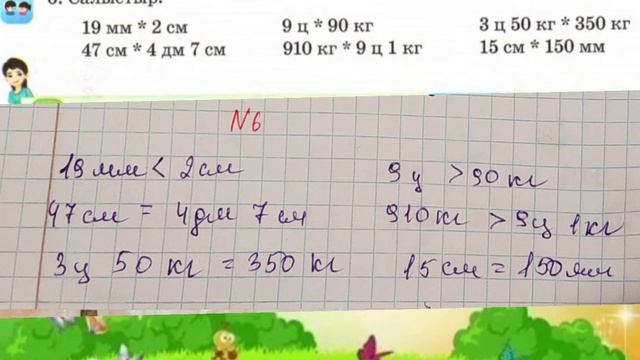 6. Салыстыр.
19 мм * 2 см 9 ц * 90 кг 3 ц 50 кг * 350 кг
47 см * 4 дм 7 см 910 кг * 9 ц 1 кг 15 см * 150 мм
N6
19 мм < 2 см 9 ц > 90 кг
47 см = 4 дм 7 см 910 кг > 9 ц 1 кг
3 ц 50 кг = 350 кг 15 см = 150 мм